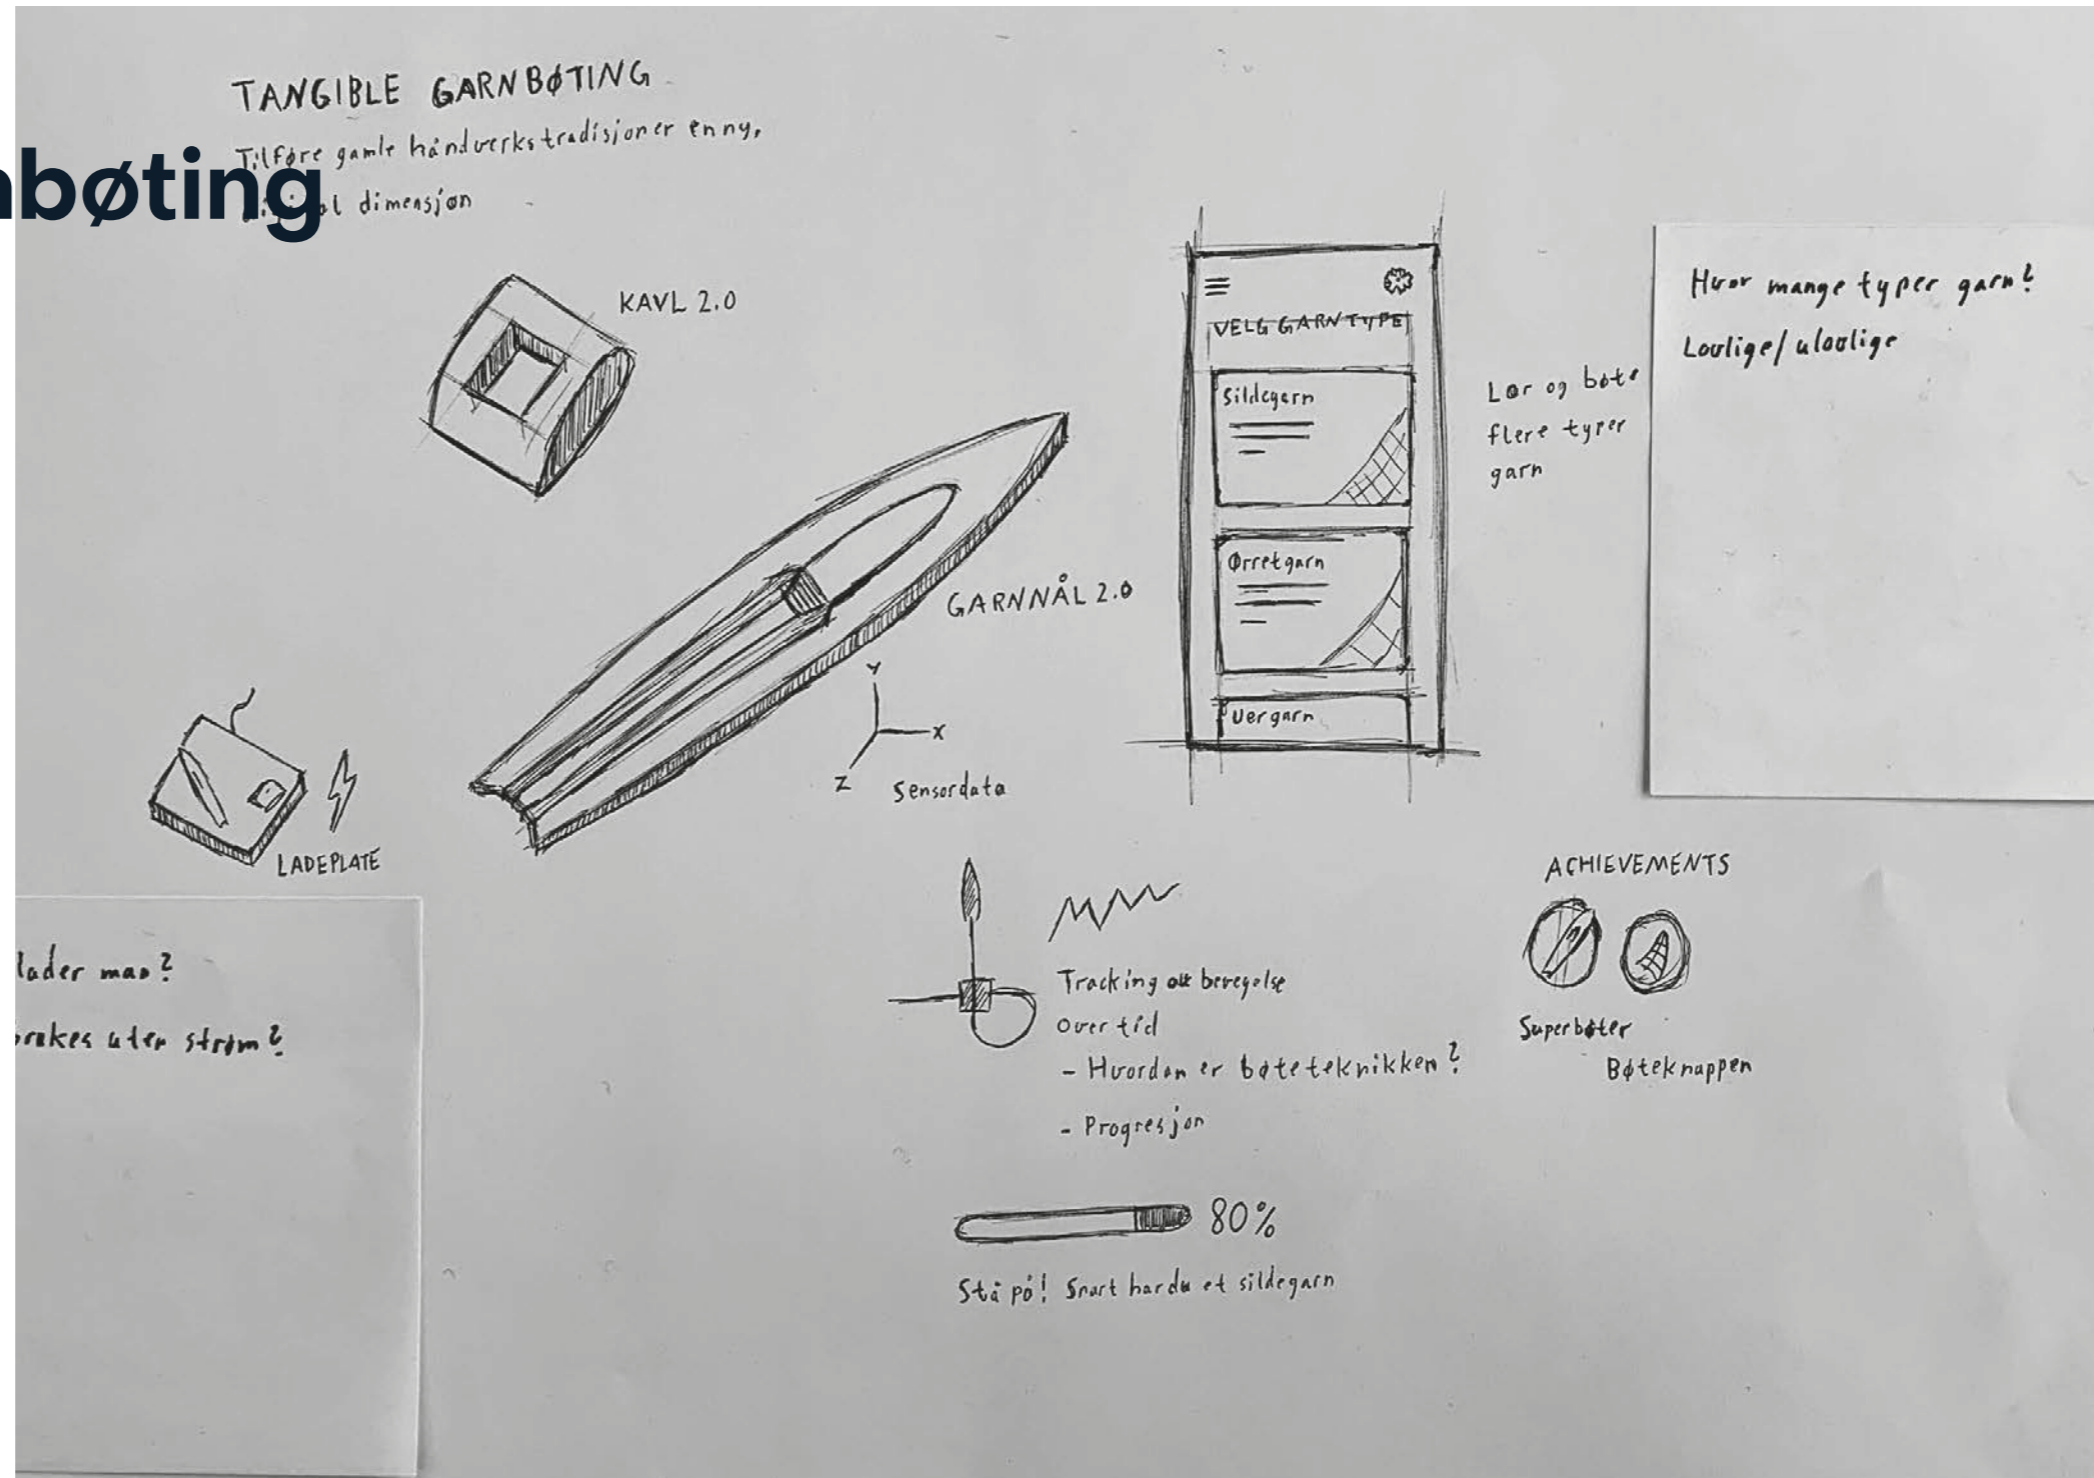 TANGIBLE GARNBØTING
Tilføre gamle håndverkstradisjoner en ny,
dimensjon
bøting
KAVL 2.0
GARNNÅL 2.0
Y
X
Z
Sensordata
LADEPLATE
VELG GARNTYPE
Sildegarn
Ørretgarn
Uergarn
Lær og bøte
flere typer
garn
Hvor mange typer garn?
Lovlige/ulovlige
lader man?
brukes uten strøm?
Tracking av bevegelse
over tid
- Hvordan er bøteteknikken?
- Progresjon
80%
Stå på! Snart har du et sildegarn
ACHIEVEMENTS
Superbøter
Bøteknappen